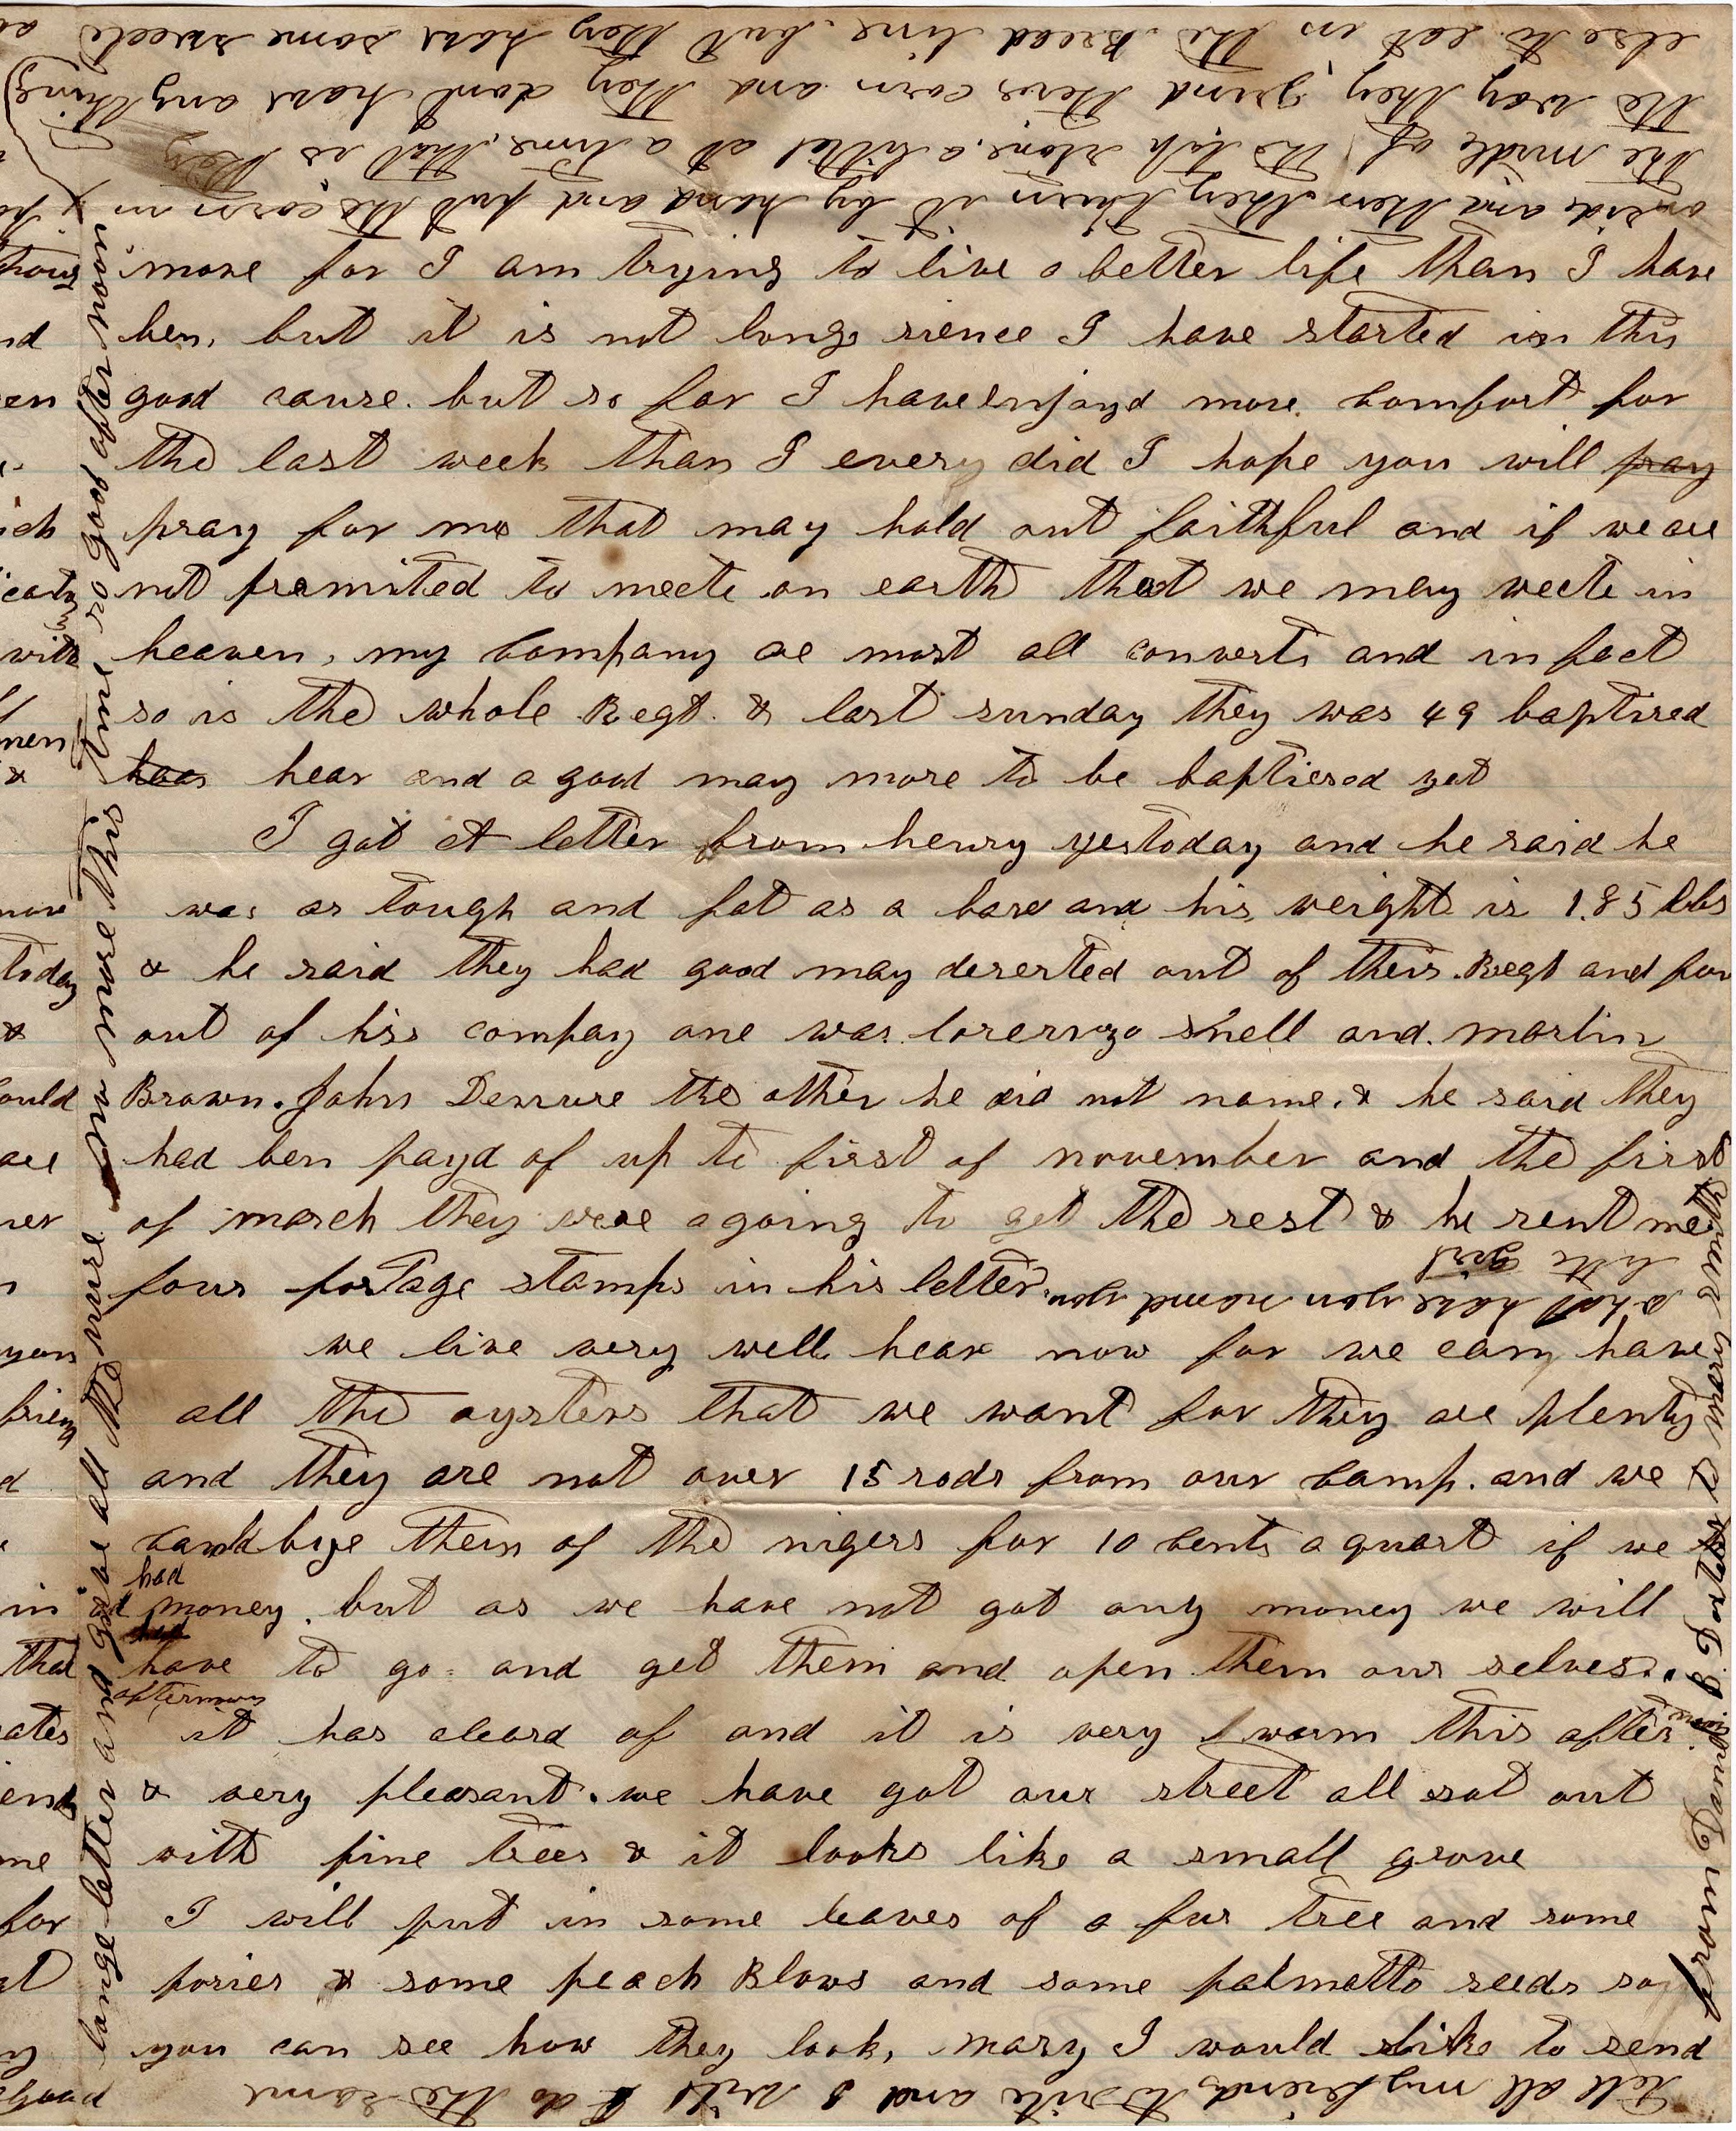 outside and then they turn it by hand and put the corn in
the midle of the top stone. a littel at a time, that is
the way they grind there corn and they dont have any thing
else to eat in the bread line. but they have some sweete
more for I am trying to live a better life than I have
ben, but it is not long sience I have started in this
good cause. but so far I have enjoyd more. comfort for
the last week than I every did I hope you will pray
pray for me that may hold out faithful and if we are
not premited to meete on earth that we may meete in
heaven, my company are most all converts and in fact
so is the whole Regt. & last sunday they was 49 baptised
hear and a good may more to be baptiesed yet
I got A letter from henry yestoday and he said he
was as tough and fat as a bare and his weight is 185 lbs
& he said they had good may deserted out of their Regt and four
out of his compay one was lorernzo snell and martin
Brown. John the other he did not name. & he said they
had ben payd of up to first of november and the first
of march they were agoing to get the rest & he sent me
four postage stamps in his letter.
what have you named your
little girl
we live very well hear now for we can have
all the oysters that we want for they are plenty
and they are not over 15 rods from our camp. and we
can bye them of the nigers for 10 cents a quart if we
had
money. but as we have not got any money we will
have to go and get them and open them our selves.
afternoon
it has cleard of and it is very warm this after noon
& very pleasant. we have got our street all sot out
with pine trees & it looks like a small grove
I will put in some leaves of a fur tree and some
posies & some peach Blows and some palmetto seeds so
you can see how they look, mary I would like to send
tell all my friends to rite and I will do the same
longe letter and give all the nuse no more this time so good afternoon
from Daniel G